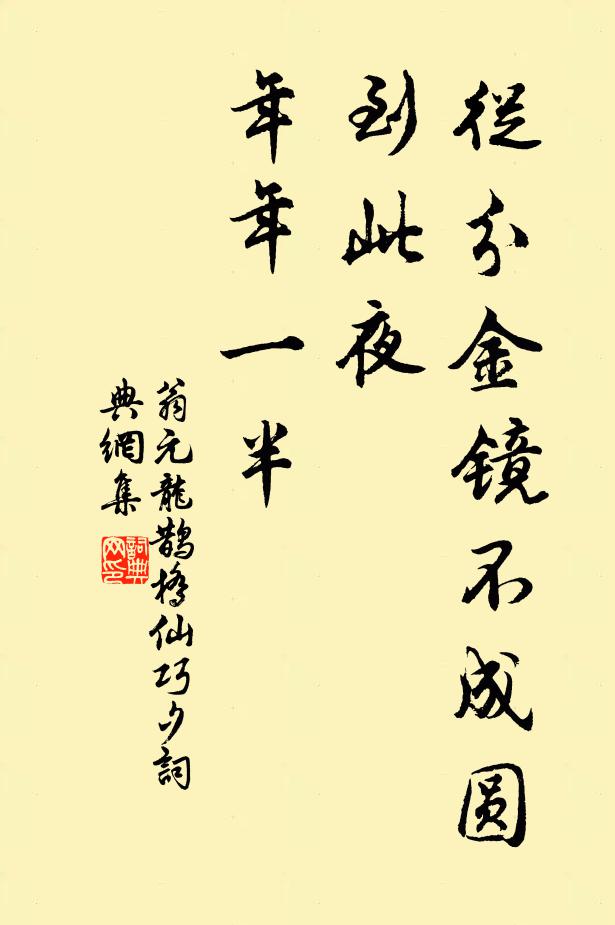 從分金镜不成圆
到此夜
年年一半
翁元龍鵲橋仙巧夕詞
典網集
詞典
网印